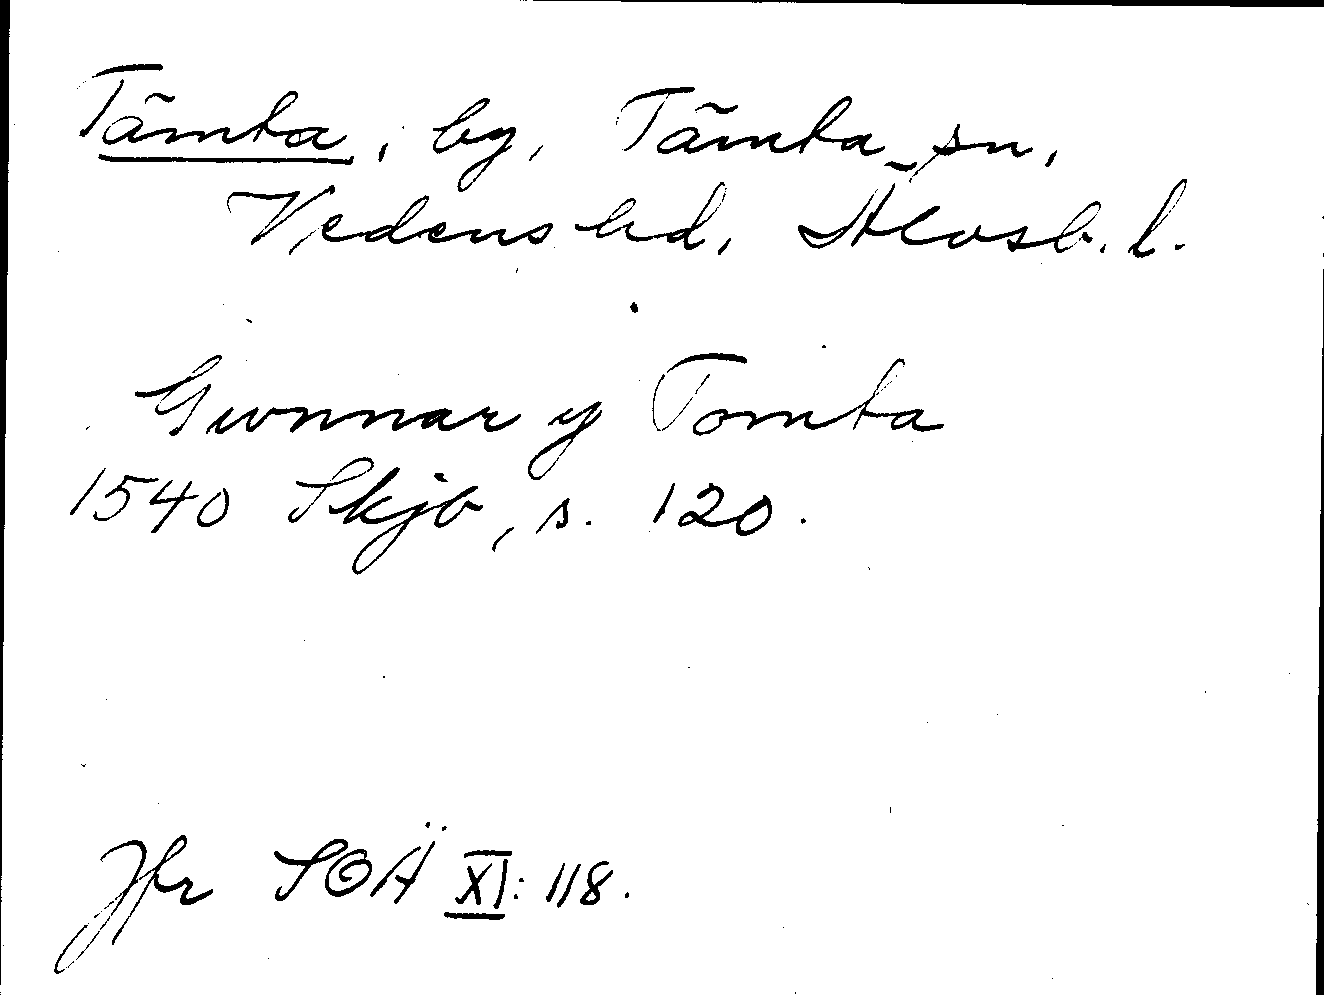 Tämta, by, Tämta sn,
Vedens hd, Älvsb. l.
Gwnnar y Tomta
1540 Skjb, s. 120.
Jfr SOÄ XI: 118.